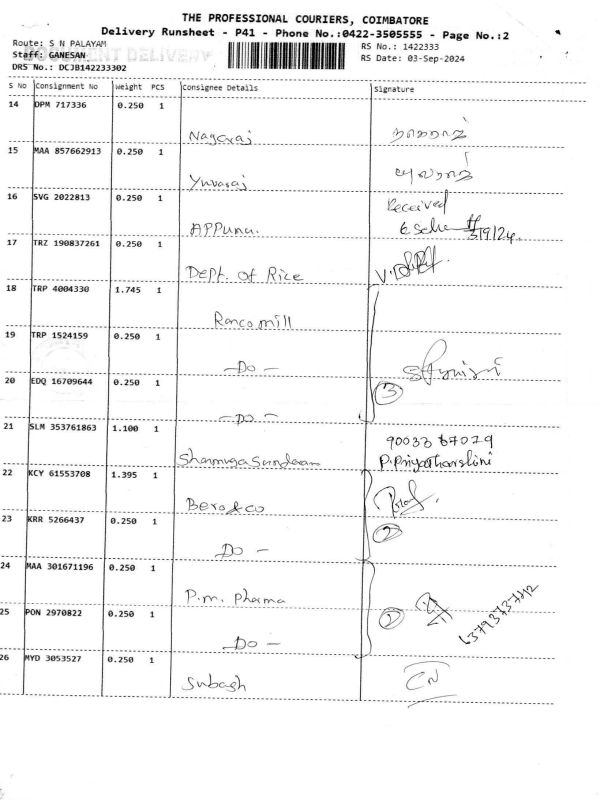 THE PROFESSIONAL COURIERS, COIMBATORE
Delivery Runsheet - P41 - Phone No.:0422-3505555 - Page No.:2
Route: S N PALAYAM
RS No.: 1422333
Staff: GANESAN
DOCUMENT DELIVERY
RS Date: 03-Sep-2024
DRS No.: DCJB142233302
S No Consignment No Weight PCS Consignee Details Signature
14 DPM 717336 0.250 1
Nagaraj நாகராஜ்
15 MAA 857662913 0.250 1
Yuvaraj யுவராஜ்
16 SVG 2022813 0.250 1 Received
APPunu. 3/9/24.
17 TRZ 190837261 0.250 1
Dept. of Rice
18 TRP 4004330 1.745 1
Ranco mill
19 TRP 1524159 0.250 1
-Do-
20 EDQ 16709644 0.250 1 3
-Do-
21 SLM 353761863 1.100 1 90033 67029
Shanmugasundaam P.Priyatharshini
22 KCY 61553708 1.395 1
Bero&co
23 KRR 5266437 0.250 1 2
Do -
24 MAA 301671196 0.250 1
P.m. Pharma
25 PON 2970822 0.250 1 2
Do -
26 MYD 3053527 0.250 1
Subash